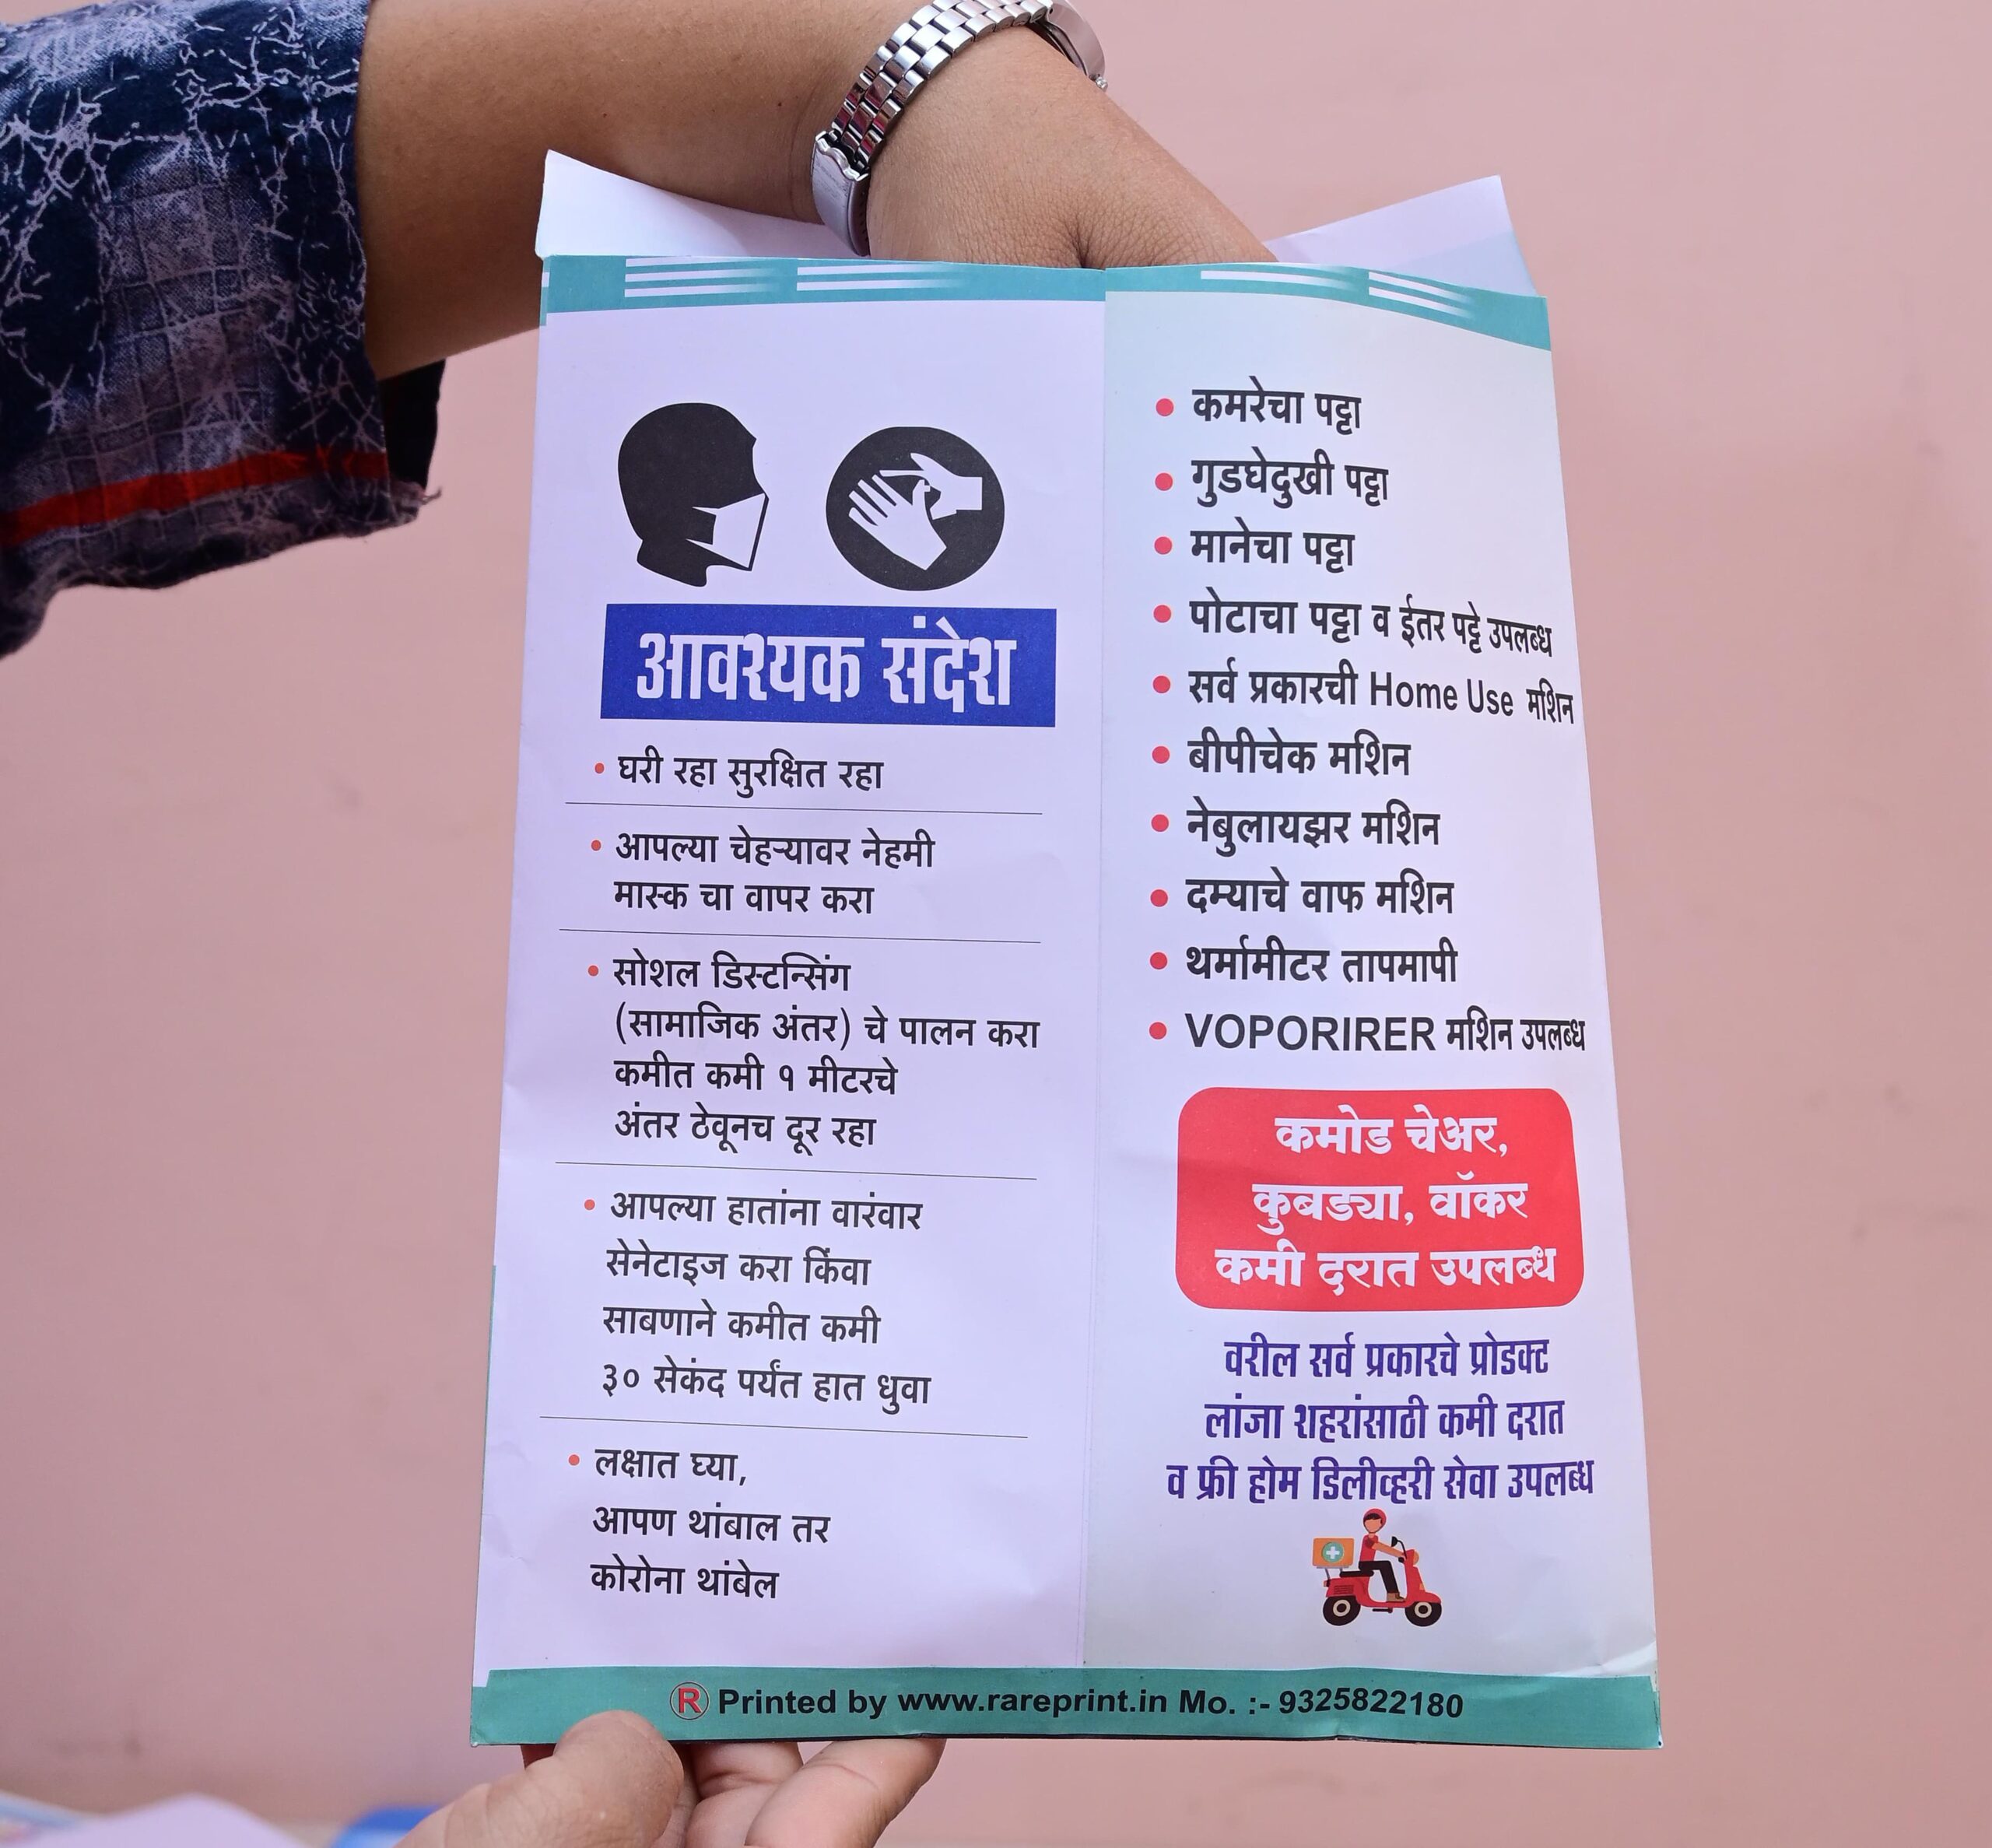 आवश्यक संदेश
• घरी रहा सुरक्षित रहा
• आपल्या चेहऱ्यावर नेहमी
मास्क चा वापर करा
• सोशल डिस्टन्सिंग
(सामाजिक अंतर) चे पालन करा
कमीत कमी १ मीटरचे
अंतर ठेवूनच दूर रहा
• आपल्या हातांना वारंवार
सेनेटाइज करा किंवा
साबणाने कमीत कमी
३० सेकंद पर्यंत हात धुवा
• लक्षात घ्या,
आपण थांबाल तर
कोरोना थांबेल
• कमरेचा पट्टा
• गुडघेदुखी पट्टा
• मानेचा पट्टा
• पोटाचा पट्टा व ईतर पट्टे उपलब्ध
• सर्व प्रकारची Home Use मशिन
• बीपीचेक मशिन
• नेबुलायझर मशिन
• दम्याचे वाफ मशिन
• थर्मामीटर तापमापी
• VOPORIRER मशिन उपलब्ध
कमोड चेअर,
कुबड्या, वॉकर
कमी दरात उपलब्ध
वरील सर्व प्रकारचे प्रोडक्ट
लांजा शहरांसाठी कमी दरात
व फ्री होम डिलीव्हरी सेवा उपलब्ध
R Printed by www.rareprint.in Mo. :- 9325822180